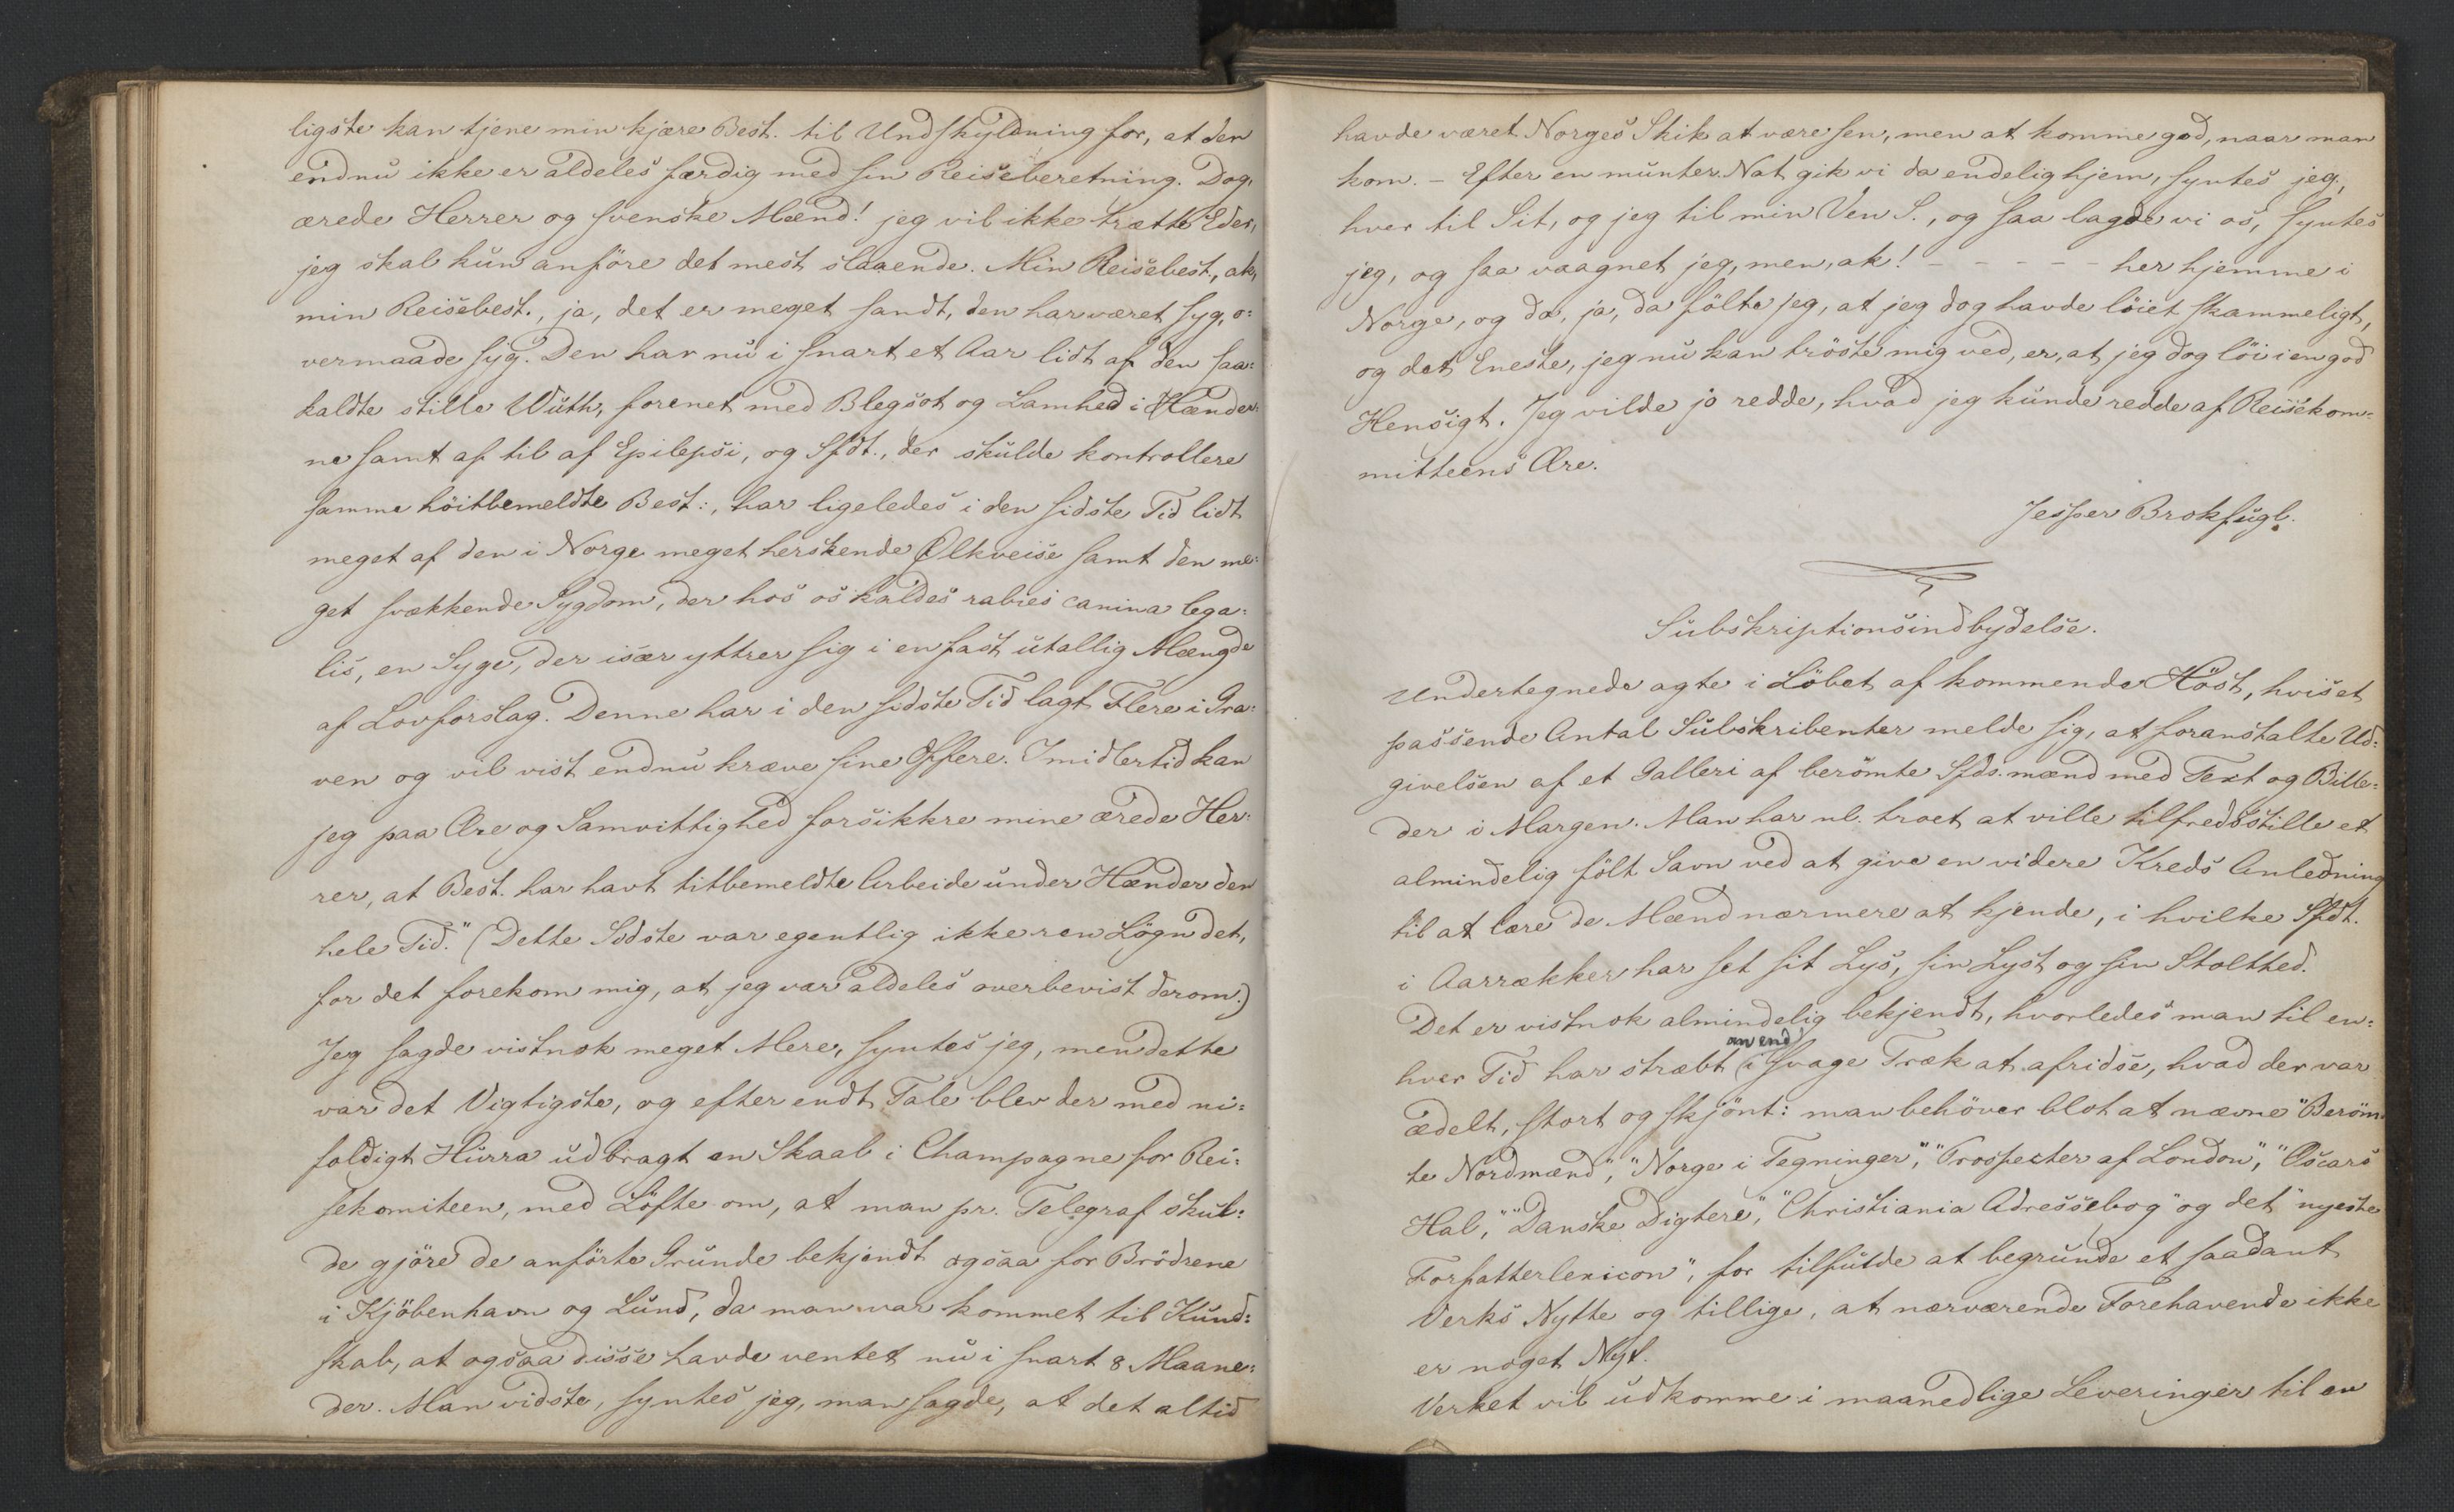 ligste kan tjene min kjære Best. til Undskyldning for, at den
endnu ikke er aldeles færdig med sin Reiseberetning. Dog,
ærede Herrer og svenske Mænd! jeg vil ikke trætte Eder,
jeg skal kun anföre det mest slaaende. Min Reisebest., ak,
min Reisebest., ja, det er meget sandt, den har været syg, o=
vermaade syg. Den har nu i snart et Aar lidt af den saa=
kaldte stille Wuth, forenet med Blegsot og Lamhed i Hænder=
ne samt af til af Epilepsi, og Sfdt., der skulde kontrollere
samme höitbemeldte Best:, har ligeledes i den sidste Tid lidt
meget af den i Norge meget herskende Ölkveise samt den me=
get svækkende Sygdom, der hos os kaldes rabies canina lega=
lis, en Syge, der især yttrer sig i en fast utallig Mængde
af Lovforslag. Denne har i den sidste Tid lagt Flere i Gra=
ven og vil vist endnu kræve sine Offere. Imidlertid kan
jeg paa Ære og Samvittighed forsikkre mine ærede Her=
rer, at Best. har havt titbemeldte Arbeide under Hænder den
hele Tid." (Dette Sidste var egentlig ikke ren Lögn det,
for det forekom mig, at jeg var aldeles overbevist derom.)
Jeg sagde vistnok meget Mere, syntes jeg, men dette
var det Vigtigste, og efter endt Tale blev der med ni=
foldigt Hurra udbragt en Skaal i Champagne for Rei=
sekomiteen, med Löfte om, at man pr. Telegraf skul=
de gjöre de anförte Grunde bekjendt ogsaa for Brödrene
i Kjöbenhavn og Lund, da man var kommet til Kund=
skab, at ogsaa disse havde ventet nu i snart 8 Maane=
der. Man vidste, syntes jeg, man sagde, at det altid
havde været Norges Skik at være sen, men at komme god, naar man
kom. – Efter en munter Nat gik vi da endelig hjem, syntes jeg,
hver til Sit, og jeg til min Ven S., og saa lagde vi os, syntes
jeg, og saa vaagnet jeg, men, ak! – – – – – her hjemme i
Norge, og da, ja, da fölte jeg, at jeg dog havde löiet skammeligt,
og det Eneste, jeg nu kan tröste mig ved, er, at jeg dog löi i en god
Hensigt. Jeg vilde jo redde, hvad jeg kunde redde af Reisekom=
mitteens Ære.
Jesper Brokfugl.
Subskriptionsindbydelse.
Undertegnede agte i Löbet af kommende Höst, hvis et
passende Antal Subskribenter melde sig, at foranstalte Ud=
givelsen af et Galleri af berömte Sfds.mænd med Text og Bille=
der i Margen. Man har nl. troet at ville tilfredsstille et
almindelig fölt Savn ved at give en videre Kreds Anledning
til at lære de Mænd nærmere at kjende, i hvilke Sfdt.
i Aarrækker har set sit Lys, sin Lyst og sin Stolthed.
Det er vistnok almindelig bekjendt, hvorledes man til en=
hver Tid har stræbt om end i svage Træk at afridse, hvad der var
ædelt, stort og skjönt: man behöver blot at nævne "Beröm=
te Nordmænd", "Norge i Tegninger", "Prospecter af London", "Oscars
Hal," "Danske Digtere", "Christiania Adressebog" og det "nyeste
Forfatterlexicon", for tilfulde at begrunde et saadant
Verks Nytte og tillige, at nærværende Forehavende ikke
er noget Nyt.
Verket vil udkomme i maanedlige Leveringer til en